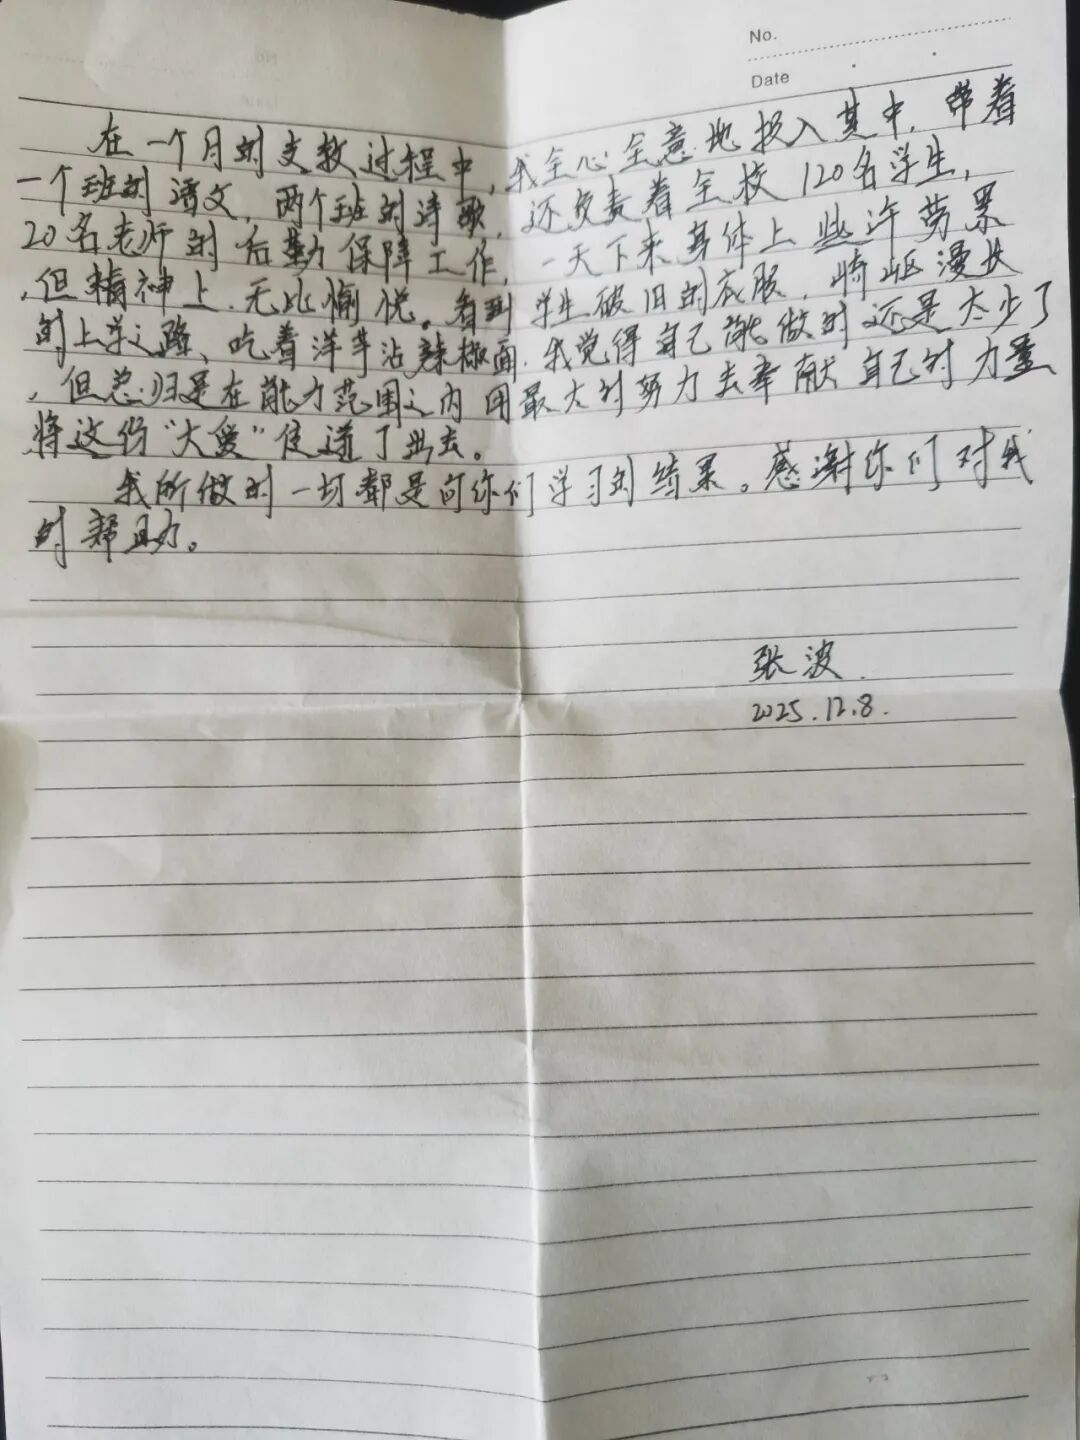 No.
Date
在一个月的支教过程中,我全心全意地投入其中,带着
一个班的语文,两个班的诗歌,还负责着全校120名学生,
20名老师的后勤保障工作,一天下来身体上些许劳累
,但精神上无比愉悦。看到学生破旧的衣服,崎岖漫长
的上学之路、吃着洋芋沾辣椒面.我觉得自己能做的还是太少了
,但总归是在能力范围之内用最大的努力去奉献自己的力量
将这份“大爱”传递了出去。
我所做的一切都是向你们学习的结果。感谢你们对我
的帮助。
张波.
2025.12.8.